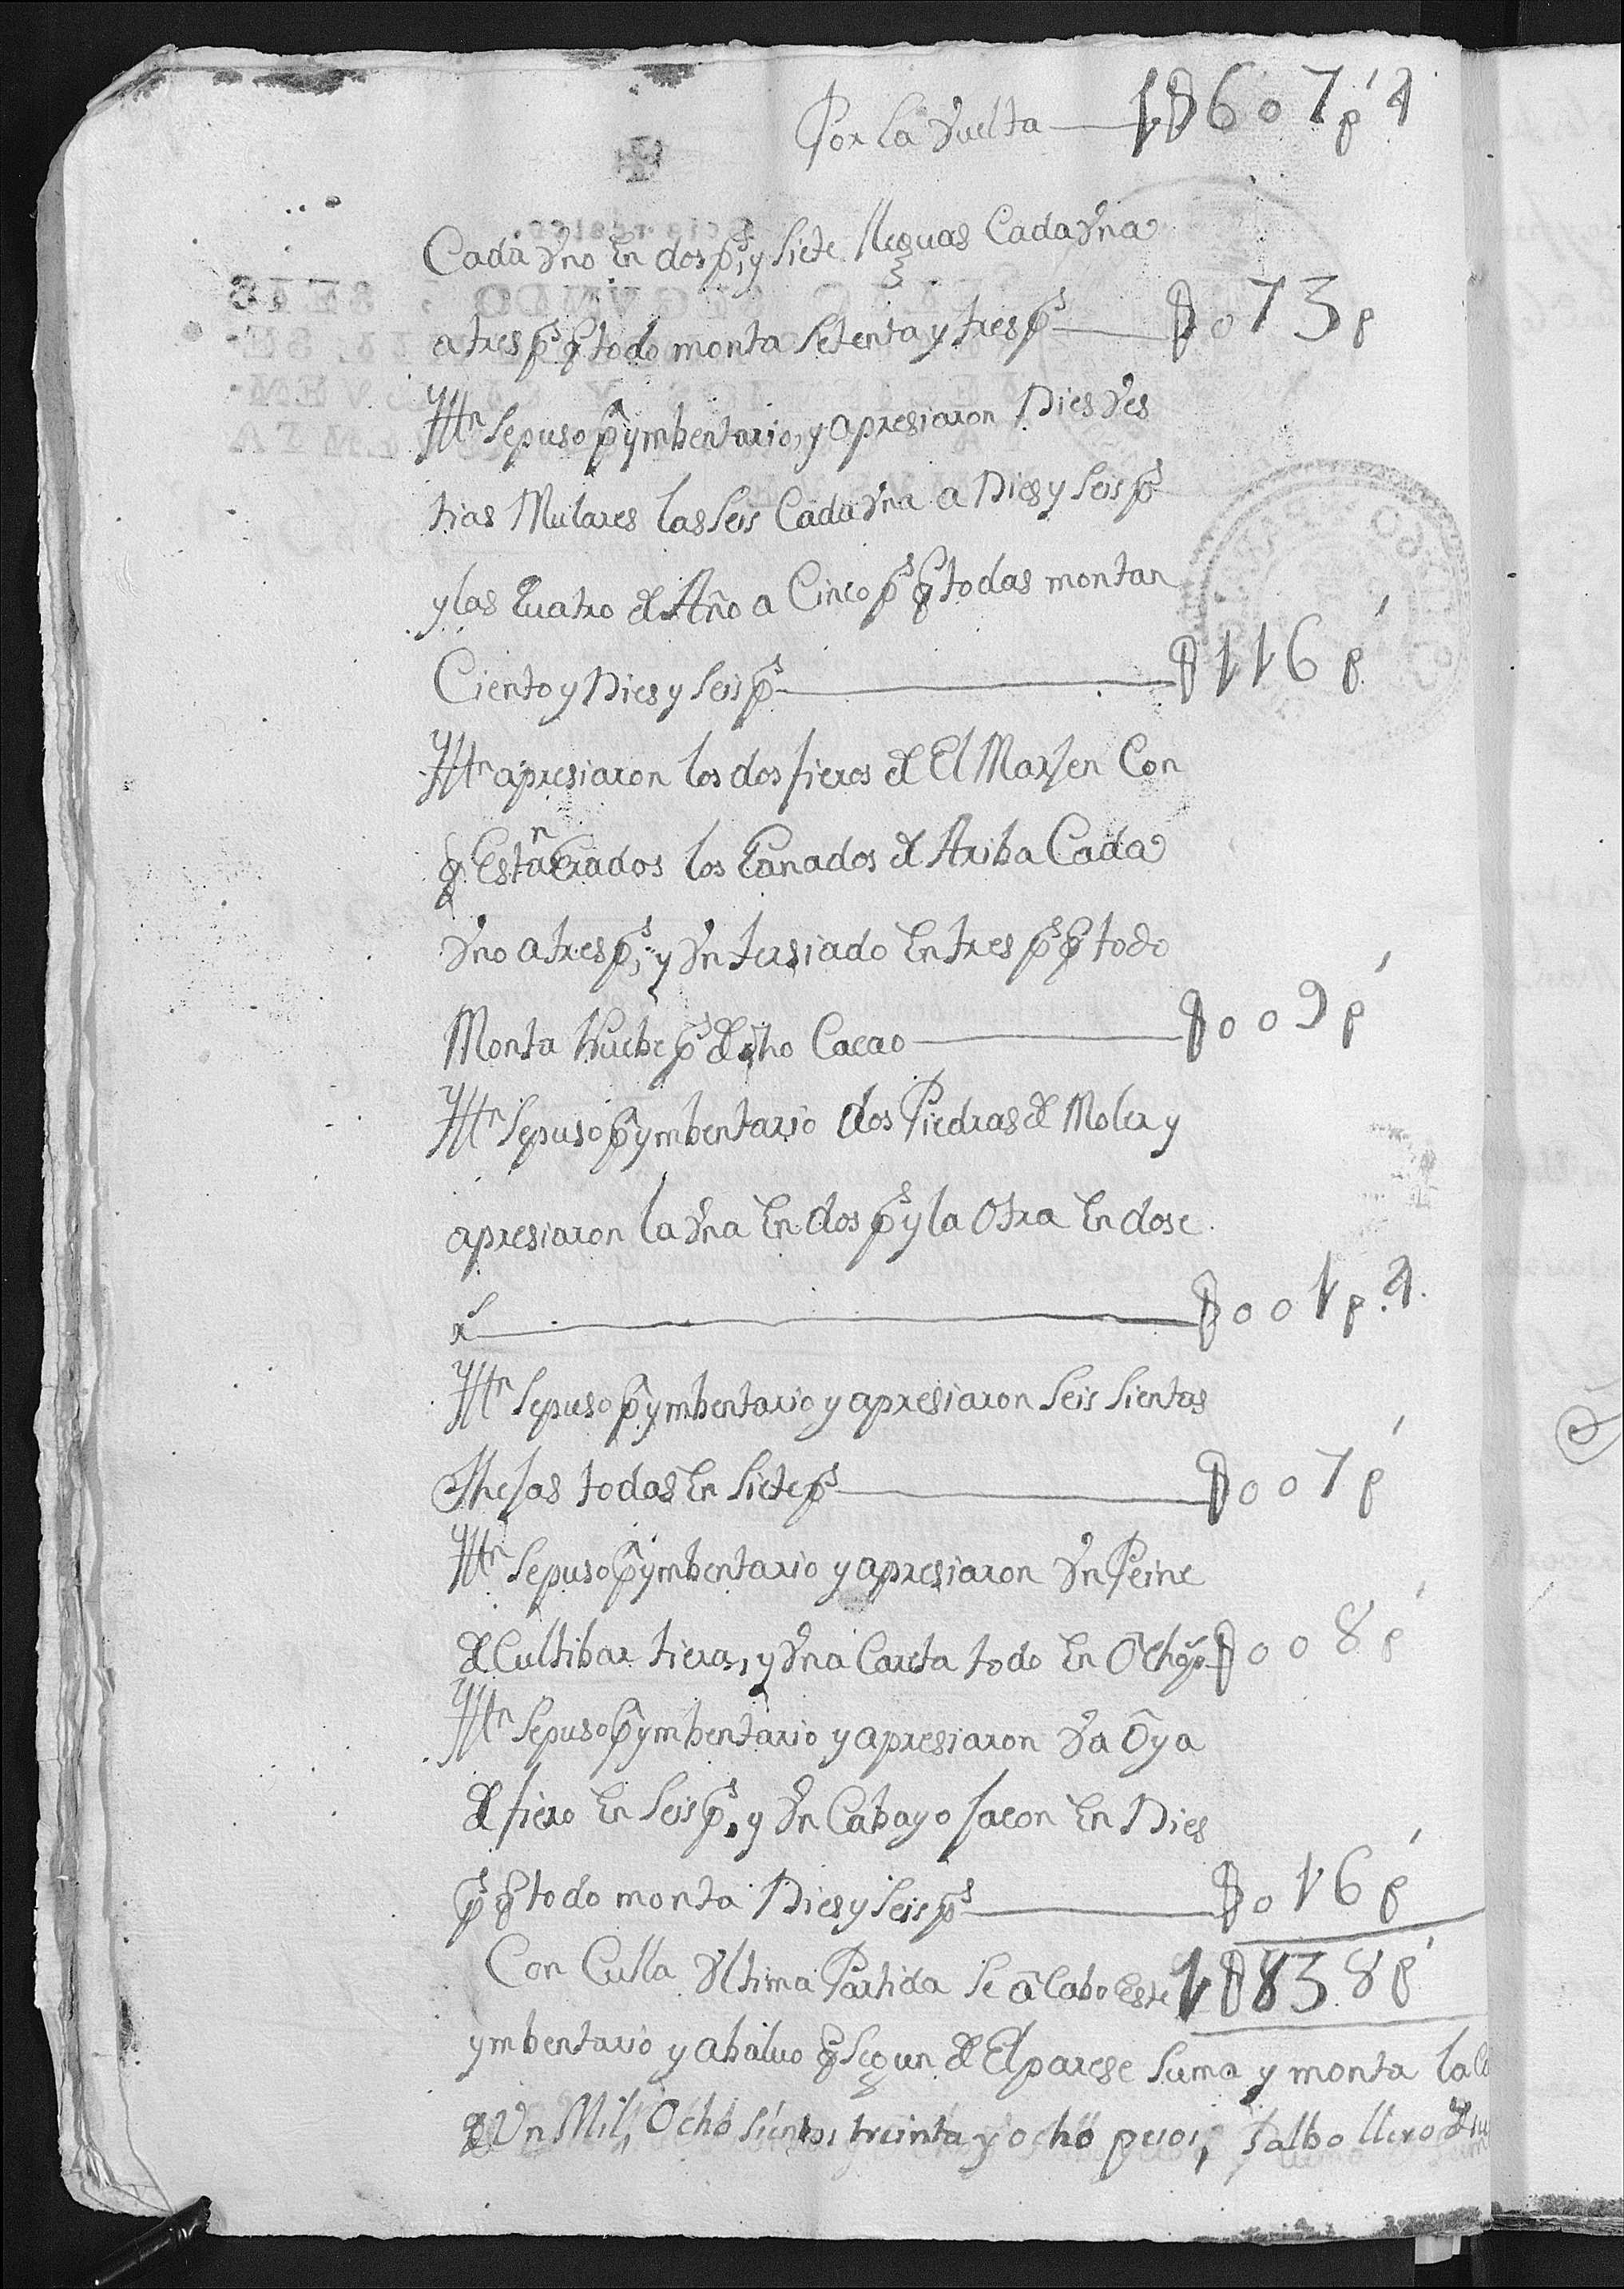 Por la Vuelta — 1U607 p' 4
Cada Vno En dos ps, y siete lleguas Cada Vna
a tres ps q todo monta Setenta y tres ps — U073 p
Ytn Se puso p ymbentario, y apresiaron Dies Ves
tias Mulares las Seis Cada Vna a Dies y Seis ps
y las Quatro d Año a Cinco ps q todas montan
Ciento y Dies y Seis ps — U116 p'
Ytn apresiaron los dos fieros d El Marjen Con
q Estan Erados los Ganados d Ariba Cada
Vno a tres ps, y Vn tersiado En tres ps q todo
Monta Nuebe ps d dho Cacao — U009 p'
Ytn Se puso p ymbentario dos Piedras d Moler y
apresiaron la Vna En dos ps y la Otra En dose
rs — U001 p. 4.
Ytn Se puso p ymbentario y apresiaron Seis Sientas
thejas todas En Siete ps — U007 p'
Ytn Se puso p ymbentario y apresiaron Vn Peine
d Cultibar tiera, y Vna Careta todo En Ocho ps U008 p'
Ytn Se puso p ymbentario y apresiaron Va Oya
d fiero En Seis ps, y Vn Cabayo Jacon En Dies
ps q todo monta Dies y Seis ps — U016 p'
Con Culla Vltima Partida Se a Cabo Este 1U838 p'
ymbentario y abaluo q Segun d El parese Suma y monta la
d Vn Mil, Ocho Sientos, treinta y ocho pesos, Salbo llero d